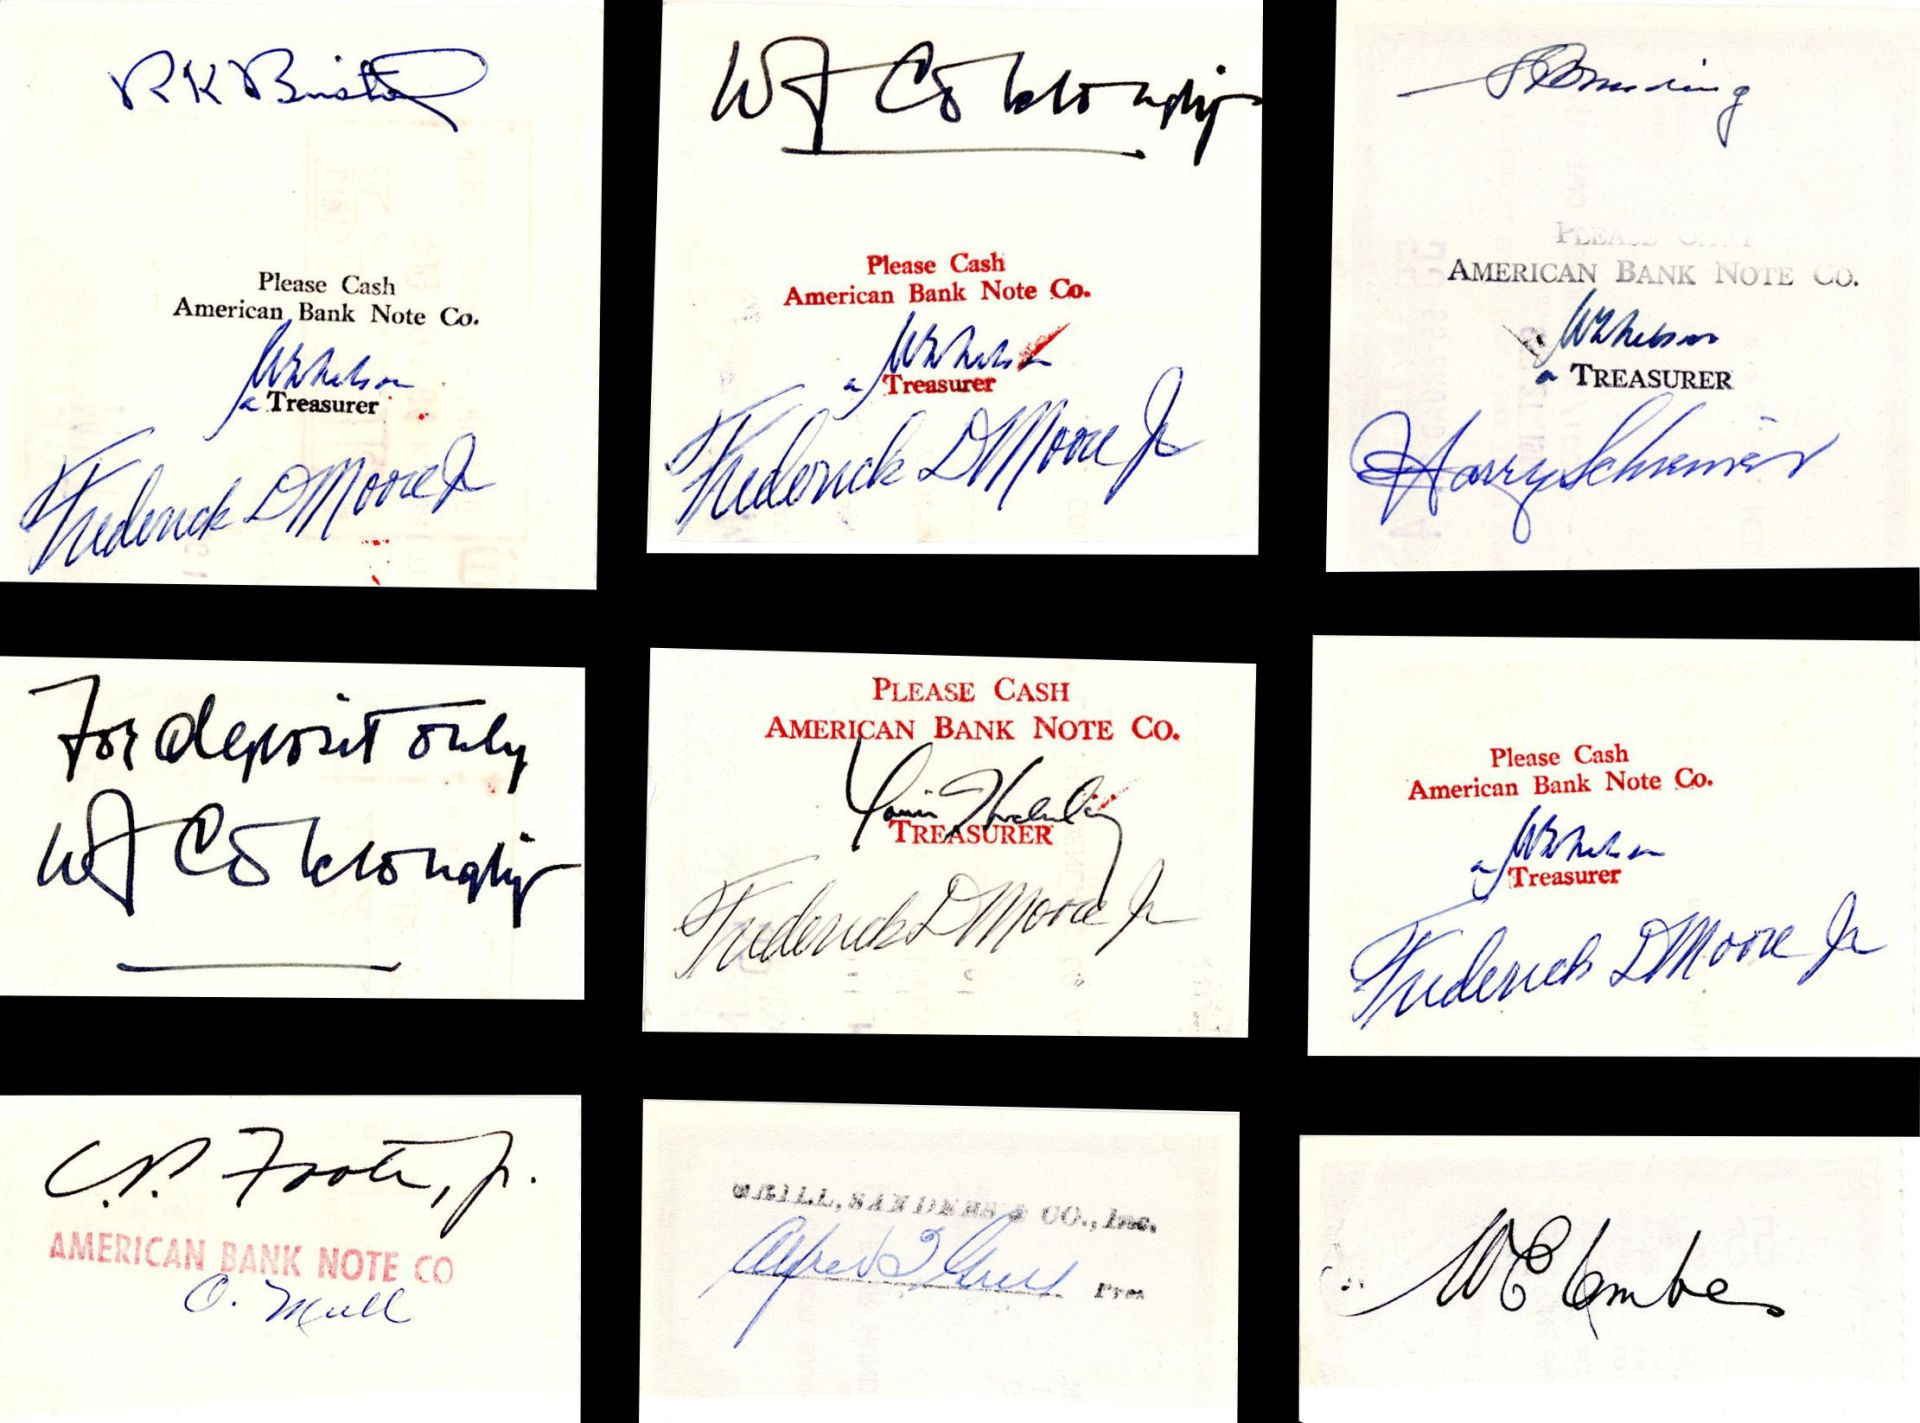 R K Bristol
Please Cash
American Bank Note Co.
a Treasurer
Frederick D Moore Jr
W F Colclough Jr
Please Cash
American Bank Note Co.
a Treasurer
Frederick D Moore Jr
Please Cash
American Bank Note Co.
a Treasurer
Harry Schreiner
For deposit only
W F Colclough Jr
Please Cash
American Bank Note Co.
Treasurer
Frederick D Moore Jr
Please Cash
American Bank Note Co.
a Treasurer
Frederick D Moore Jr
C. P. Foote, Jr.
AMERICAN BANK NOTE CO
C. Mull
SANDERS & CO., Inc.
Alfred Pres
W E Combes